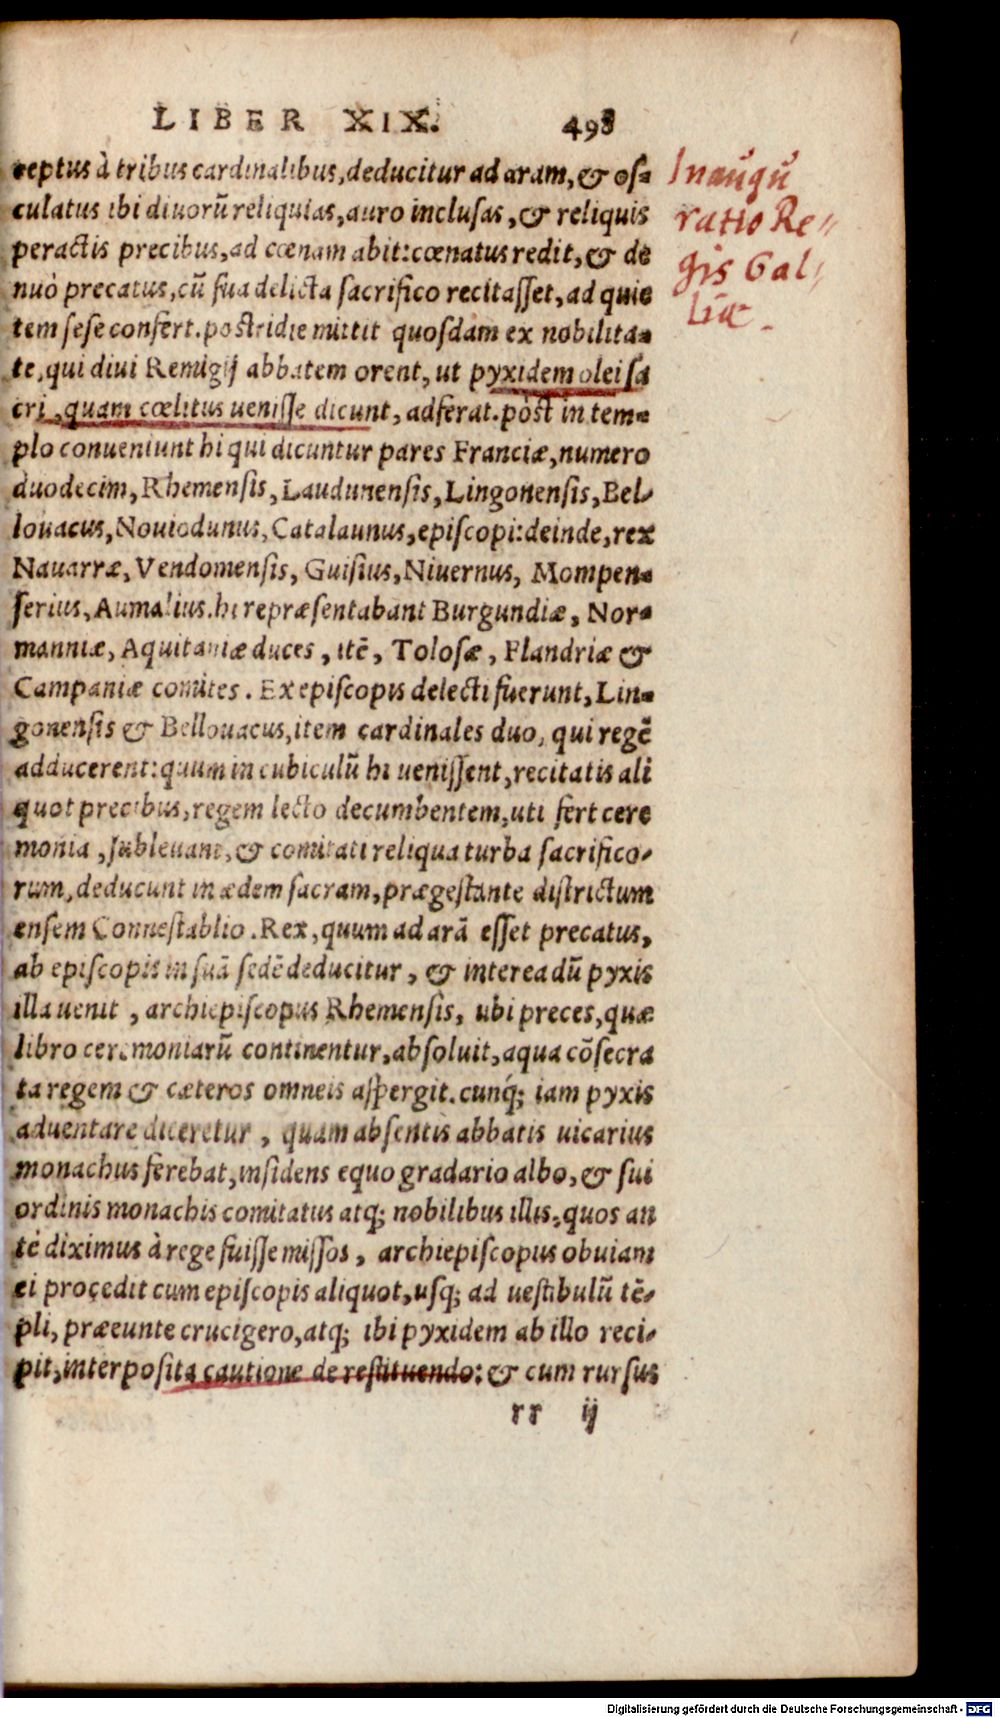 LIBER XIX. 498
ceptus à tribus cardinalibus, deducitur ad aram, & os-
culatus ibi diuorũ reliquias, auro inclusas, & reliquis
peractis precibus, ad cœnam abit: cœnatus redit, & de
nuò precatus, cũ sua delicta sacrifico recitasset, ad quie
tem sese confert. postridie mittit quosdam ex nobilita-
te, qui diui Remigij abbatem orent, ut pyxidem olei sa
cri, quam cœlitus uenisse dicunt, adferat. pòst in tem-
plo conueniunt hi qui dicuntur pares Franciæ, numero
duodecim, Rhemensis, Laudunensis, Lingonensis, Bel-
louacus, Nouiodunus, Catalaunus, episcopi: deinde, rex
Nauarræ, Vendomensis, Guisius, Niuernus, Mompen-
serius, Aumalius. hi repræsentabant Burgundiæ, Nor-
manniæ, Aquitaniæ duces, itẽ, Tolosæ, Flandriæ &
Campaniæ comites. Ex episcopis delecti fuerunt, Lin-
gonensis & Bellouacus, item cardinales duo, qui regẽ
adducerent: quum in cubiculũ hi uenissent, recitatis ali
quot precibus, regem lecto decumbentem, uti fert cere
monia, subleuant, & comitati reliqua turba sacrifico-
rum, deducunt in ædem sacram, prægestante districtum
ensem Connestablio. Rex, quum ad arã esset precatus,
ab episcopis in suã sedẽ deducitur, & interea dũ pyxis
illa uenit, archiepiscopus Rhemensis, ubi preces, quæ
libro ceremoniarũ continentur, absoluit, aqua cõsecra
ta regem & cæteros omneis aspergit. cunq́; iam pyxis
aduentare diceretur, quam absentis abbatis uicarius
monachus ferebat, insidens equo gradario albo, & sui
ordinis monachis comitatus atq; nobilibus illis, quos an
tè diximus à rege fuisse missos, archiepiscopus obuiam
ei procedit cum episcopis aliquot, usq; ad uestibulũ tẽ-
pli, præeunte crucigero, atq; ibi pyxidem ab illo reci-
pit, interposita cautione de restituendo: & cum rursus
rr ij
Inaugu
ratio Re-
gis Gal-
liæ.
Digitalisierung gefördert durch die Deutsche Forschungsgemeinschaft - DFG